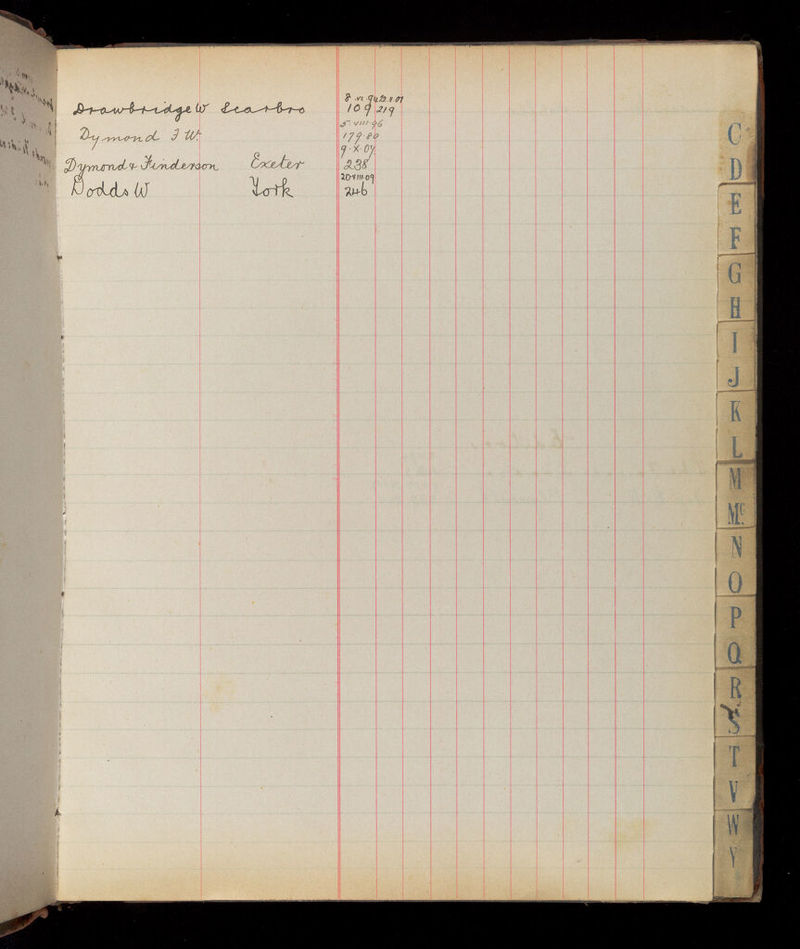 8 VI 94 22 X 01
Drawbridge W Scarbro 109 219
5 VIII 96
Dymond F W. 179-80
9·X·07
Dymond & Finderson Exeter 238
20 VIII 09
Dodds W York 246
C
D
E
F
G
H
I
J
K
L
M
Mc
N
O
P
Q
R
S
T
V
W
Y